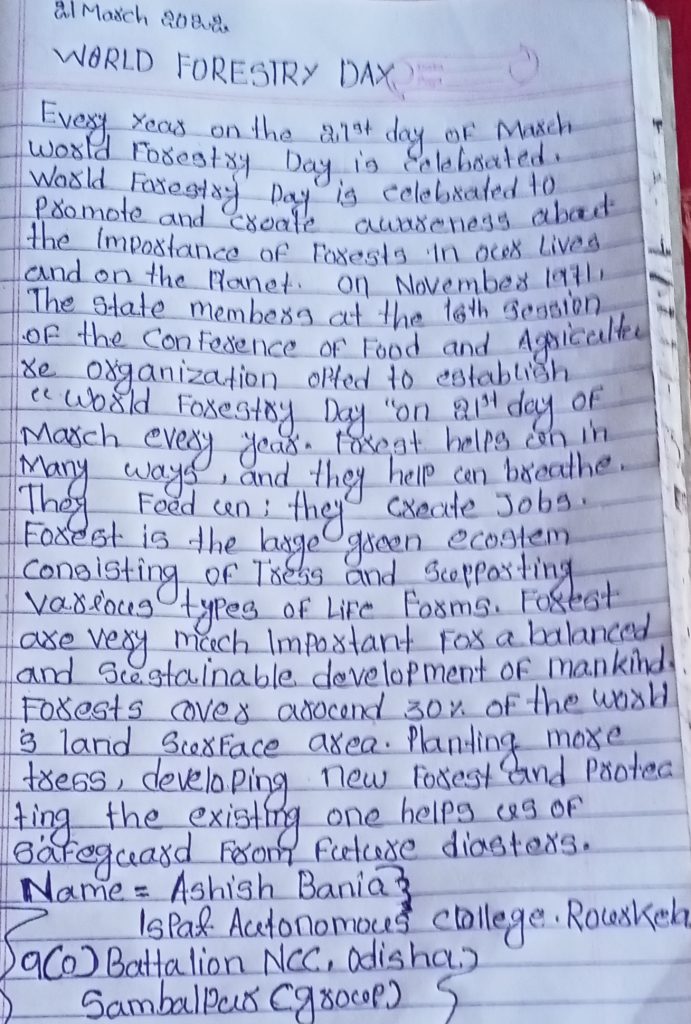 21 March 2022
WORLD FORESTRY DAY
Every year on the 21st day of March
World Forestry Day is Celebrated.
World Forestry Day is celebrated to
Promote and create awareness about
the Importance of Forests in ocer Lives
and on the Planet. on November 1971,
The state members at the 16th Session
of the Conference of Food and Agricultu
re organization opted to establish
"World Forestry Day "on 21st day of
March every year. Forest helps in
Many ways, and they help breathe.
They Feed; they Create Jobs.
Forest is the large green ecostem
Consisting of Tress and Supporting
Various types of Life Forms. Forest
are very much Important For a balanced
and Sustainable development of mankind.
Forests cover around 30% of the world
's land Surface area. Planting more
tress, developing new Forest and Protec
ting the existing one helps us of
Safeguard From Future diasters.
Name = Ashish Bania
Ispat Autonomous College. Rourkela
9(O) Battalion NCC, Odisha.
Sambalpur (group)